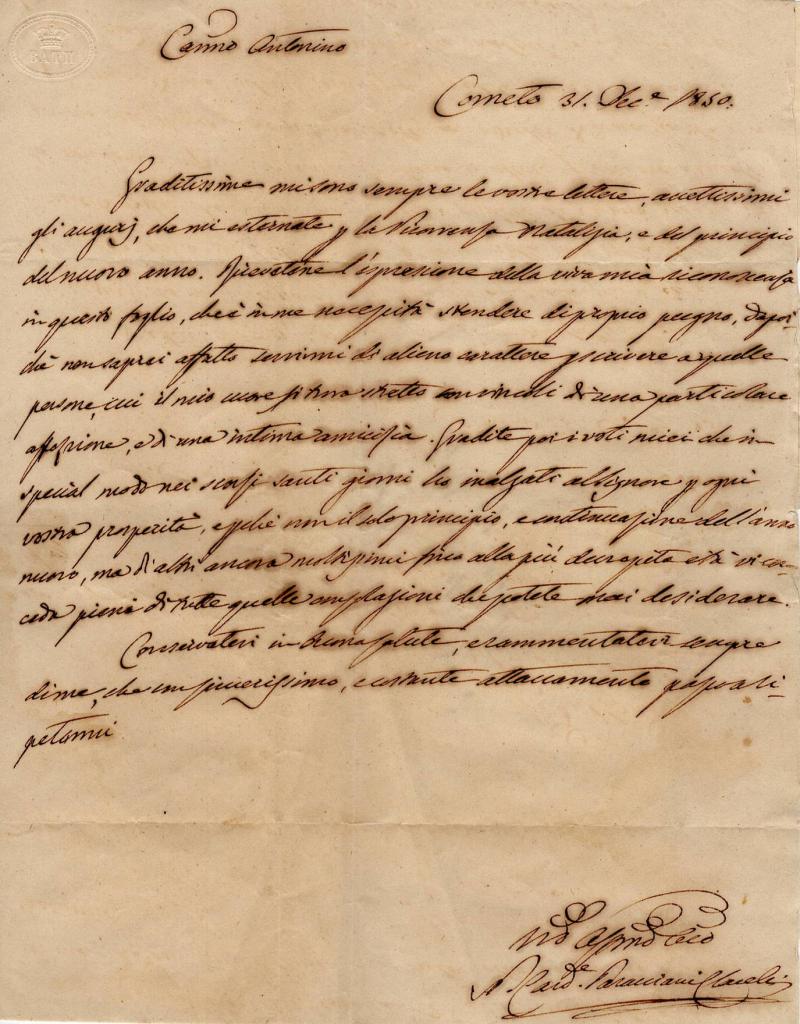 BATH
Carmo Antonino
Corneto 31. Dec.e 1850.
Graditissime mi sono sempre le vostre lettere, accettissimi
gli augurj, che mi esternate p la Ricorrenza Natalizia, e del principio
del nuovo anno. Ricevetene l'espressione della viva mia riconoscenza
in questo foglio, che è in me necessità stendere di proprio pugno, dapoi-
chè non saprei affatto servirmi di alieno carattere p scrivere a quelle
persone, cui il mio cuore si trova stretto con vincoli di una particolare
affezione, e di una intima amicizia. Gradite poi i voti miei che in
special modo nei scorsi santi giorni ho inalzati al Signore p ogni
vostra prosperità, e pchè non il solo principio, e continuazione dell'anno
nuovo, ma di altri ancora moltissimi fino alla più decrepita età vi con-
ceda pieni di tutte quelle consolazioni che potete mai desiderare.
Conservatevi in buona salute, e rammentatevi sempre
di me, che con sincerissimo, e costante attaccamento passo a ri-
petermi
Affmo
N. Card.e Paracciani Clarelli